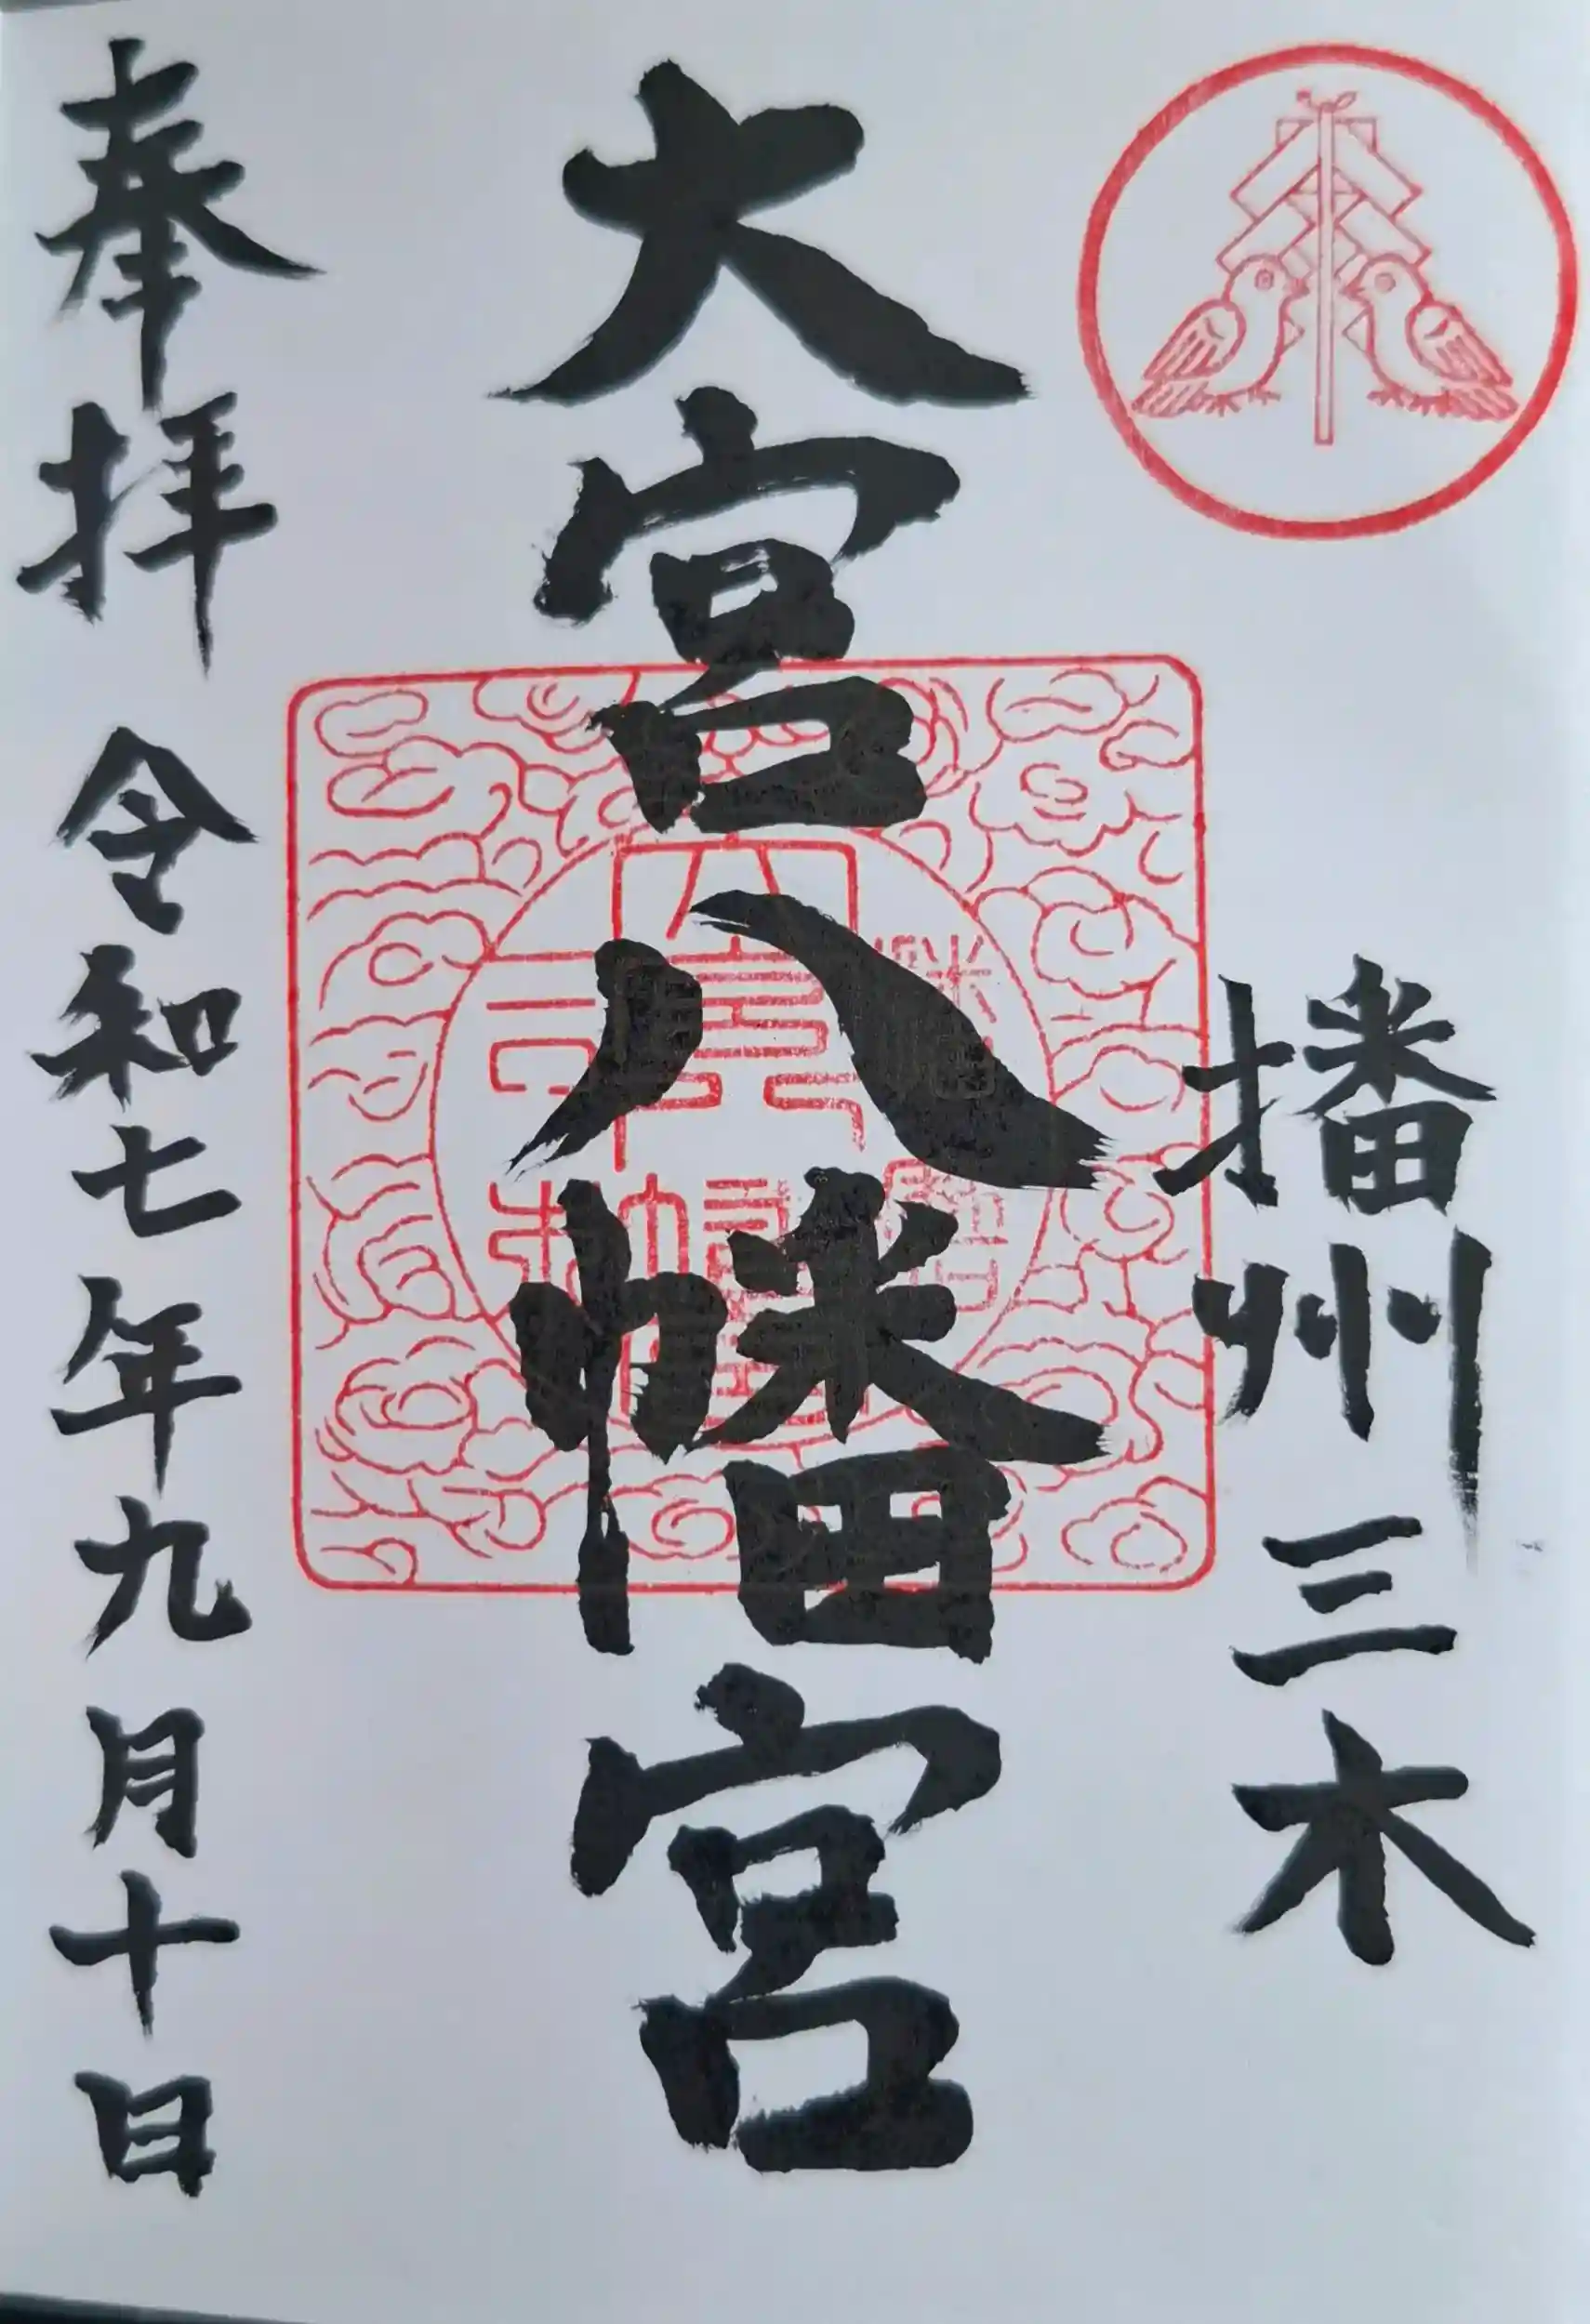 播州三木
大宮八幡宮
奉拝 令和七年九月十日